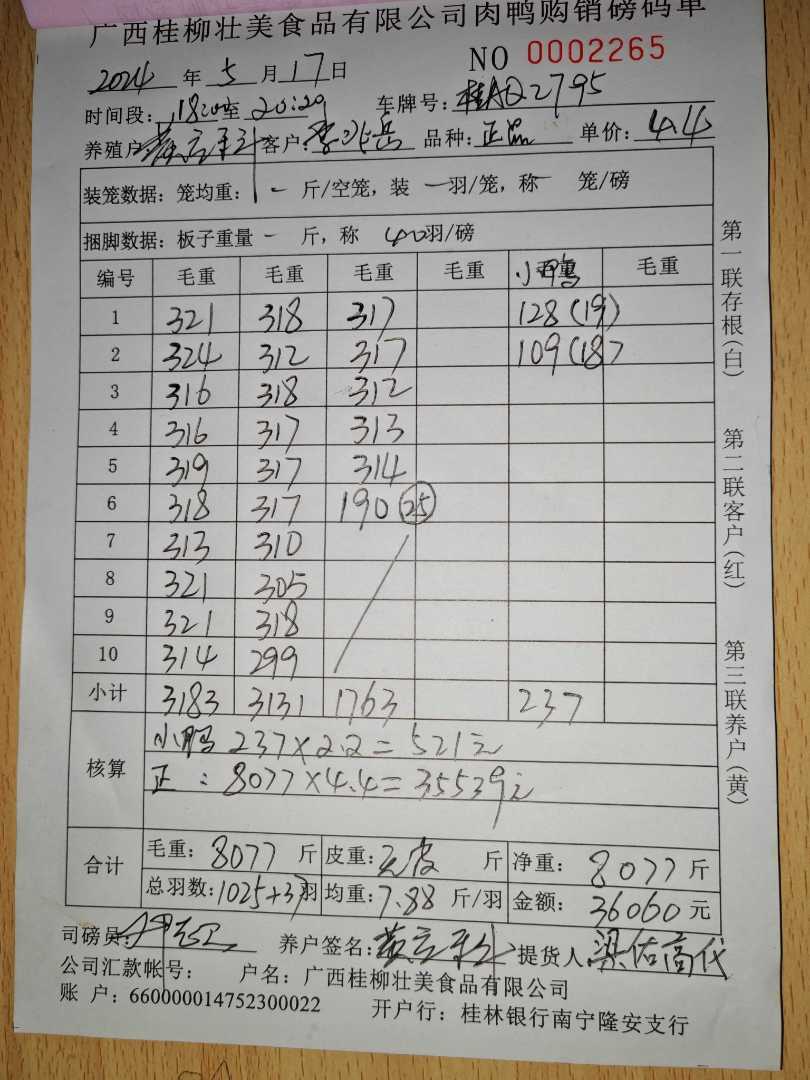 广西桂柳壮美食品有限公司肉鸭购销磅码单
NO 0002265
2024年5月17日
时间段: 18:20至20:20 车牌号: 桂AQ2795
养殖户: 客户: 李兆岳 品种: 正品 单价: 4.4
装笼数据: 笼均重: - 斤/空笼, 装 一羽/笼, 称 - 笼/磅
捆脚数据: 板子重量 - 斤, 称 40羽/磅
编号 毛重 毛重 毛重 毛重 小鸭 毛重
1 321 318 317 128(19)
2 324 312 317 109(18)
3 316 318 312
4 316 317 313
5 319 317 314
6 318 317 190 25
7 313 310
8 321 305
9 321 318
10 314 299
小计 3183 3131 1763 237
核算 小鸭 237×2.2=521元
正: 8077×4.4=35539元
合计 毛重: 8077 斤 皮重: 无皮 斤 净重: 8077 斤
总羽数: 1025+37羽 均重: 7.88 斤/羽 金额: 36060元
司磅员: 养户签名: 提货人: 梁佑高代
公司汇款帐号: 户名: 广西桂柳壮美食品有限公司
账 户: 660000014752300022 开户行: 桂林银行南宁隆安支行
第一联存根(白) 第二联客户(红) 第三联养户(黄)